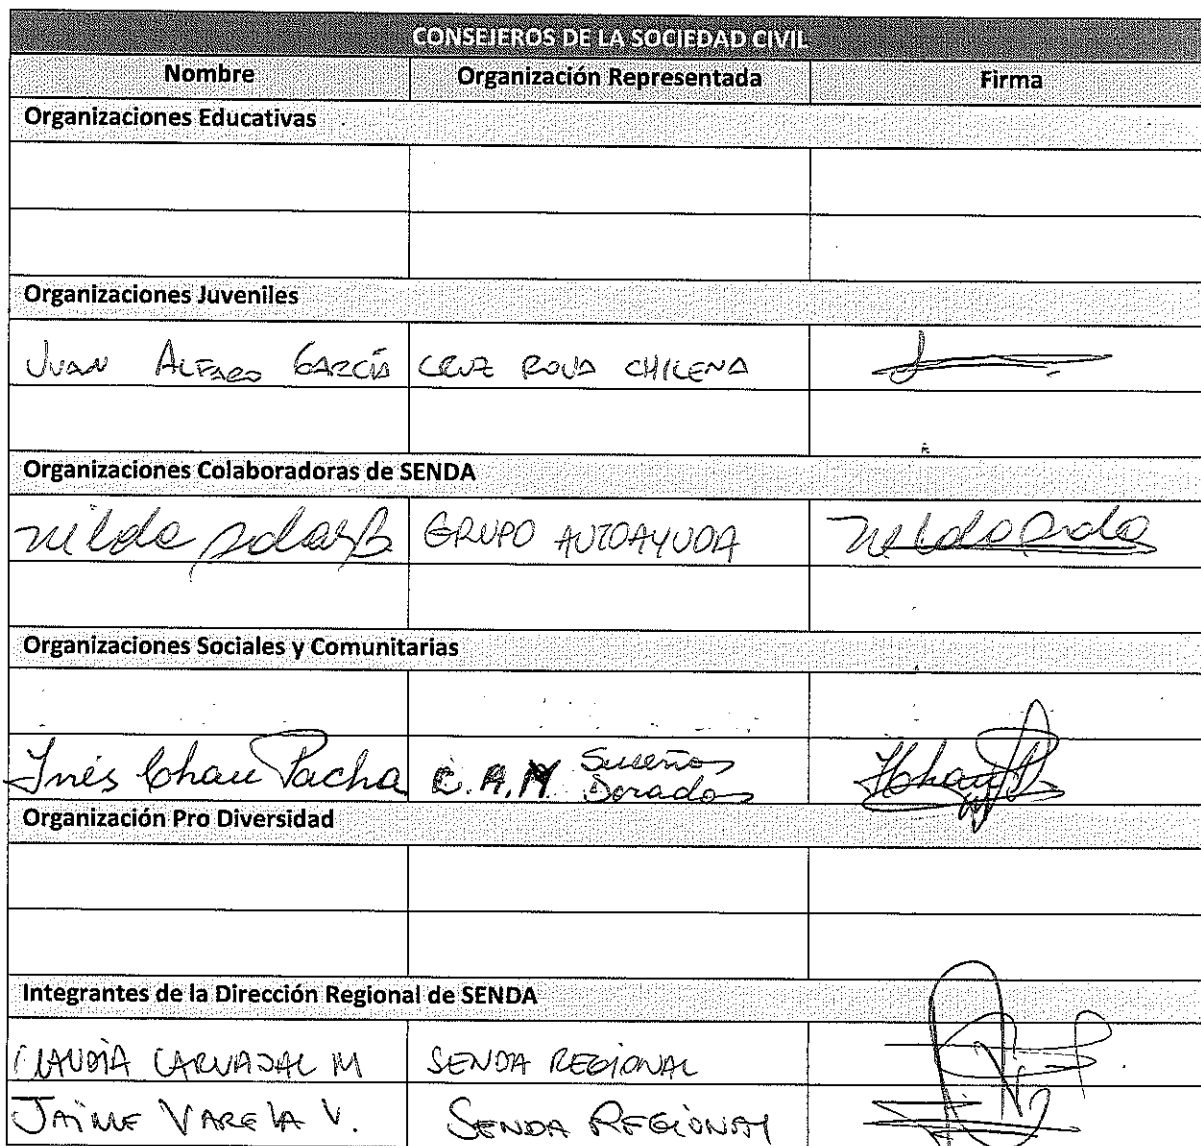 CONSEJEROS DE LA SOCIEDAD CIVIL
Nombre Organización Representada Firma
Organizaciones Educativas
Organizaciones Juveniles
JUAN ALFARO GARCÍA CRUZ ROJA CHILENA
Organizaciones Colaboradoras de SENDA
nilda GRUPO AUTOAYUDA
Organizaciones Sociales y Comunitarias
Inés Chau Pacha C.A.M Sueños
Dorados
Organización Pro Diversidad
Integrantes de la Dirección Regional de SENDA
CLAUDIA CARVAJAL M SENDA REGIONAL
JAIME VARELA V. SENDA REGIONAL